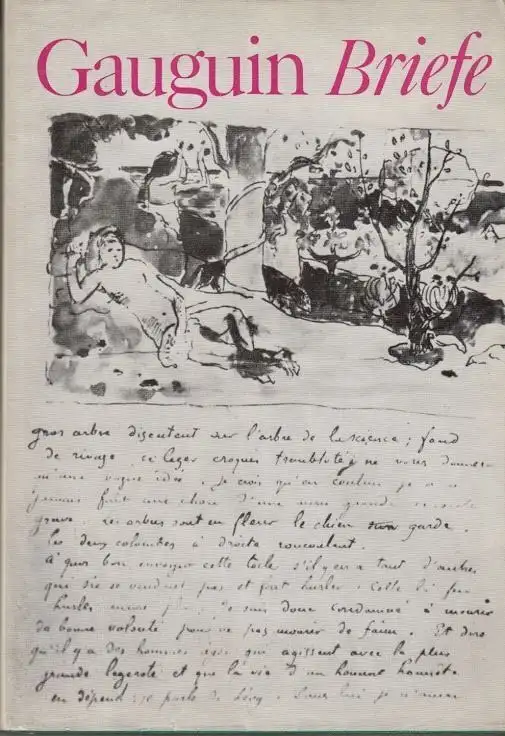 Gauguin Briefe
gros arbre discutent sur l'arbre de la science ; fond
de rivage ce leger croquis tremblote ne vous donnera
qu'une vague idée. Je crois qu'en couleur je n'ai
jamais fait une chose d'une grande sonorité
grave. Les arbres sont en fleur le chien garde.
les deux colombes à droite roucoulent.
à quoi bon envoyer cette toile s'il y en a tant d'autres
qui ne se vendent pas et font hurler. Celle là fera
hurler encore plus. Je suis donc condamné à mourir
de bonne volonté pour ne pas mourir de faim. Et dire
qu'il y a des hommes qui agissent avec la plus
grande legereté et que la vie d'un homme honnête
en dépend ; je parle de Lévy.